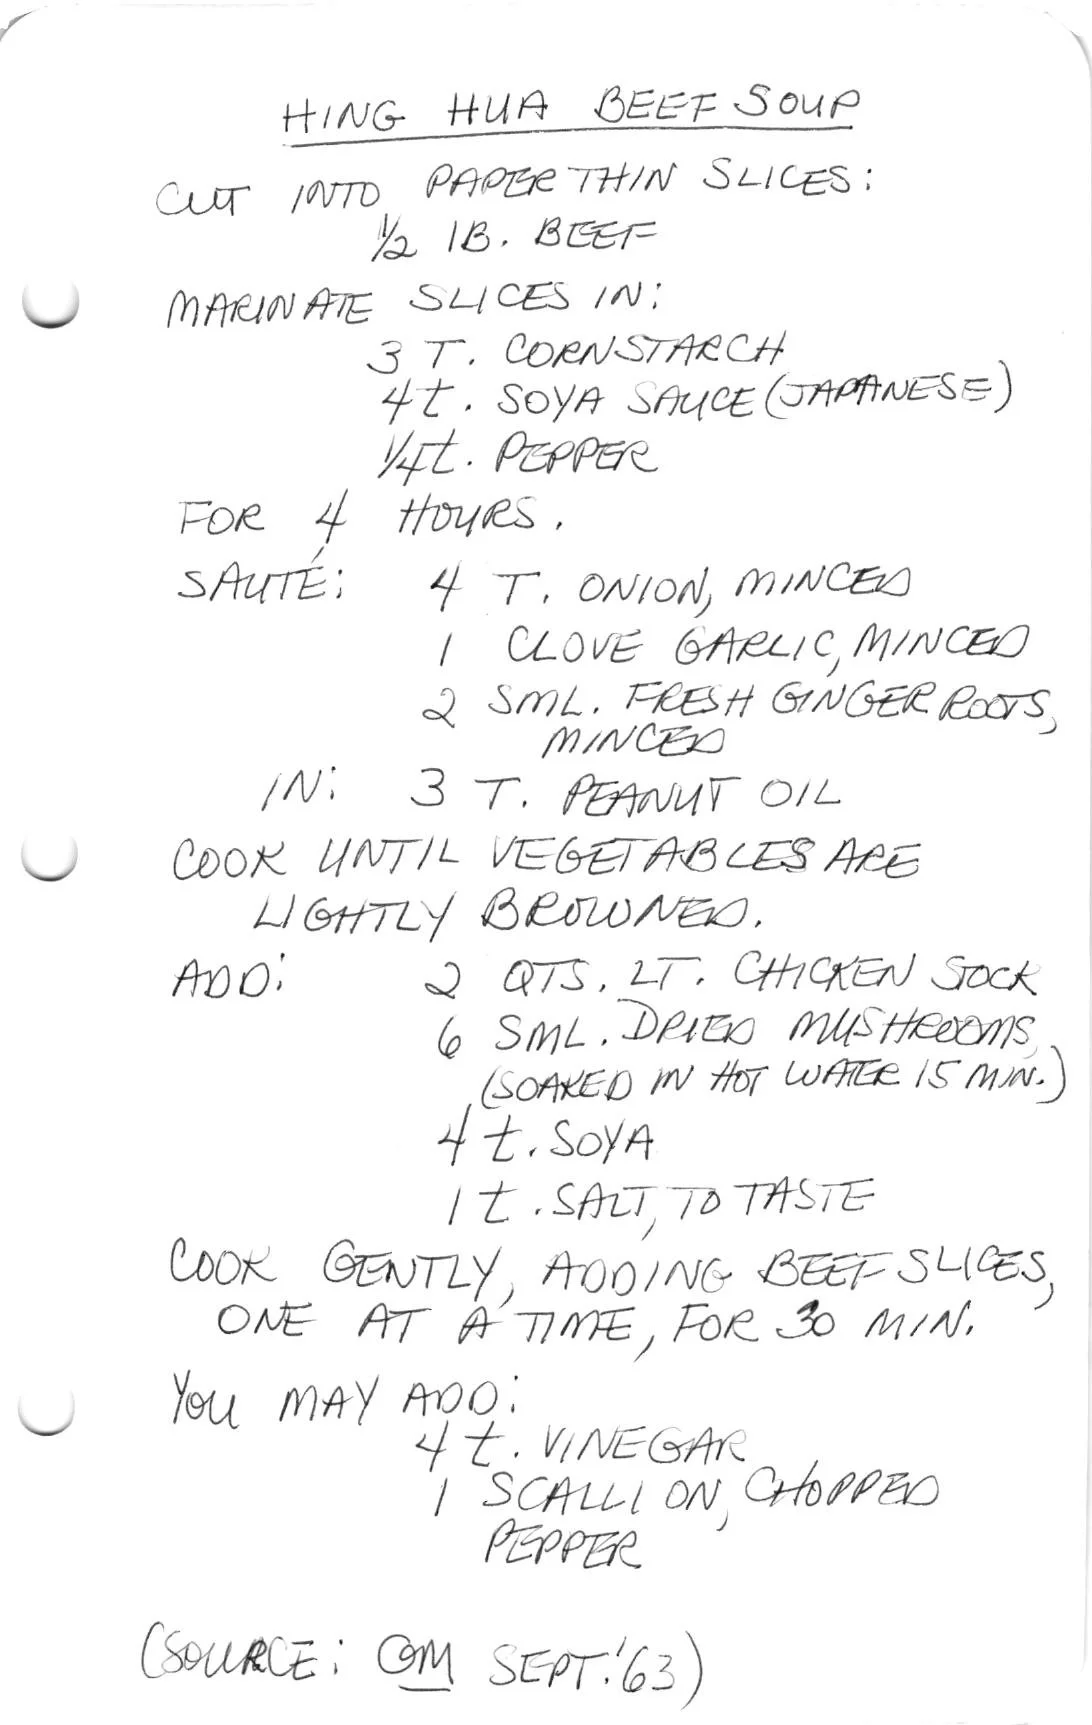 HING HUA BEEF SOUP
CUT INTO PAPER THIN SLICES:
1/2 lB. BEEF
MARINATE SLICES IN:
3 T. CORNSTARCH
4 t. SOYA SAUCE (JAPANESE)
1/4 t. PEPPER
FOR 4 HOURS.
SAUTÉ: 4 T. ONION, MINCED
1 CLOVE GARLIC, MINCED
2 SML. FRESH GINGER ROOTS,
MINCED
IN: 3 T. PEANUT OIL
COOK UNTIL VEGETABLES ARE
LIGHTLY BROWNED.
ADD: 2 QTS. LT. CHICKEN STOCK
6 SML. DRIED MUSHROOMS,
(SOAKED IN HOT WATER 15 MIN.)
4 t. SOYA
1 t. SALT, TO TASTE
COOK GENTLY, ADDING BEEF SLICES,
ONE AT A TIME, FOR 30 MIN.
YOU MAY ADD:
4 t. VINEGAR
1 SCALLION, CHOPPED
PEPPER
(SOURCE: GM SEPT. '63)